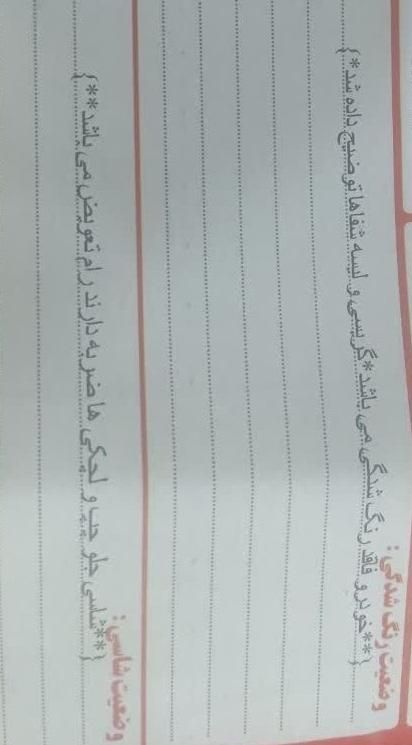 وضعیت رنگ شدگی :
{**خودرو فاقد رنگ شدگی می باشد*گریسی و لیسه شفاها توضیح داده شد*}
وضعیت شاسی :
{**شاسی جلو چپ و لچکی ها ضربه دارند رام تعویض می باشد**}